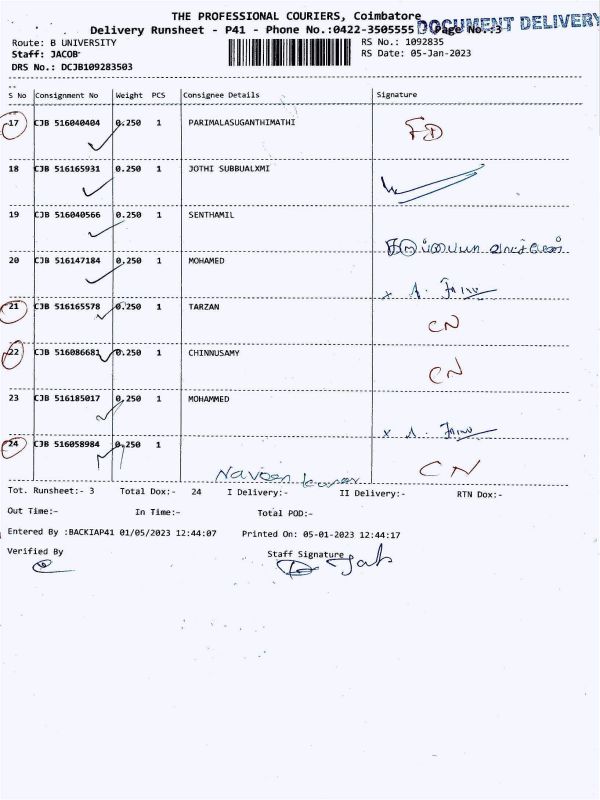 THE PROFESSIONAL COURIERS, Coimbatore
DOCUMENT DELIVERY
Delivery Runsheet - P41 - Phone No.:0422-3505555 Page No.:3
Route: B UNIVERSITY RS No.: 1092835
Staff: JACOB RS Date: 05-Jan-2023
DRS No.: DCJB109283503
S No Consignment No Weight PCS Consignee Details Signature
17 CJB 516040404 0.250 1 PARIMALASUGANTHIMATHI FD
18 CJB 516165931 0.250 1 JOTHI SUBBUALXMI
19 CJB 516040566 0.250 1 SENTHAMIL
20 CJB 516147184 0.250 1 MOHAMED
21 CJB 516165578 0.250 1 TARZAN CN
22 CJB 516086681 0.250 1 CHINNUSAMY CN
23 CJB 516185017 0.250 1 MOHAMMED
24 CJB 516058984 0.250 1 CN
Naveen
Tot. Runsheet:- 3 Total Dox:- 24 I Delivery:- II Delivery:- RTN Dox:-
Out Time:- In Time:- Total POD:-
Entered By :BACKIAP41 01/05/2023 12:44:07 Printed On: 05-01-2023 12:44:17
Verified By Staff Signature